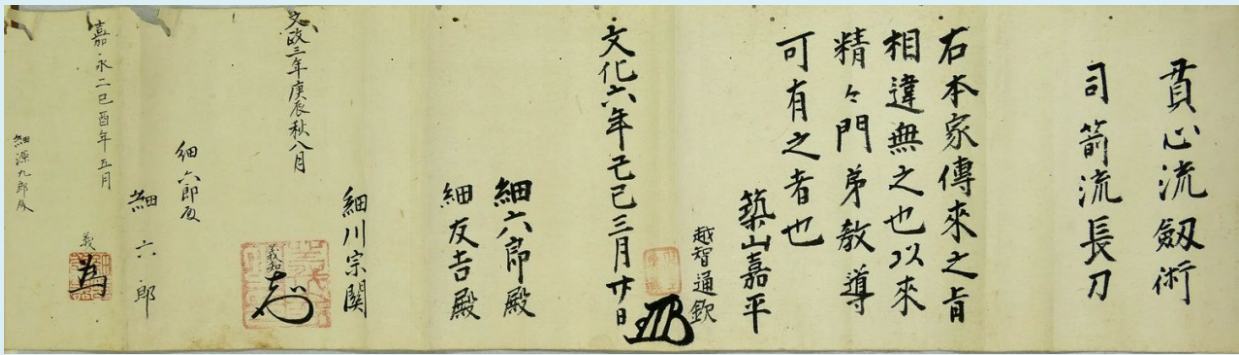 貫心流劔術
司箭流長刀
右本家傳來之旨
相違無之也以來
精々門弟教導
可有之者也
築山嘉平
越智通欽
文化六年己巳三月廿日
細六郎殿
細友吉殿
細川宗閑
義知
文政三年庚辰秋八月
細六郎殿
細六郎
義
嘉永二己酉年五月
細源九郎殿